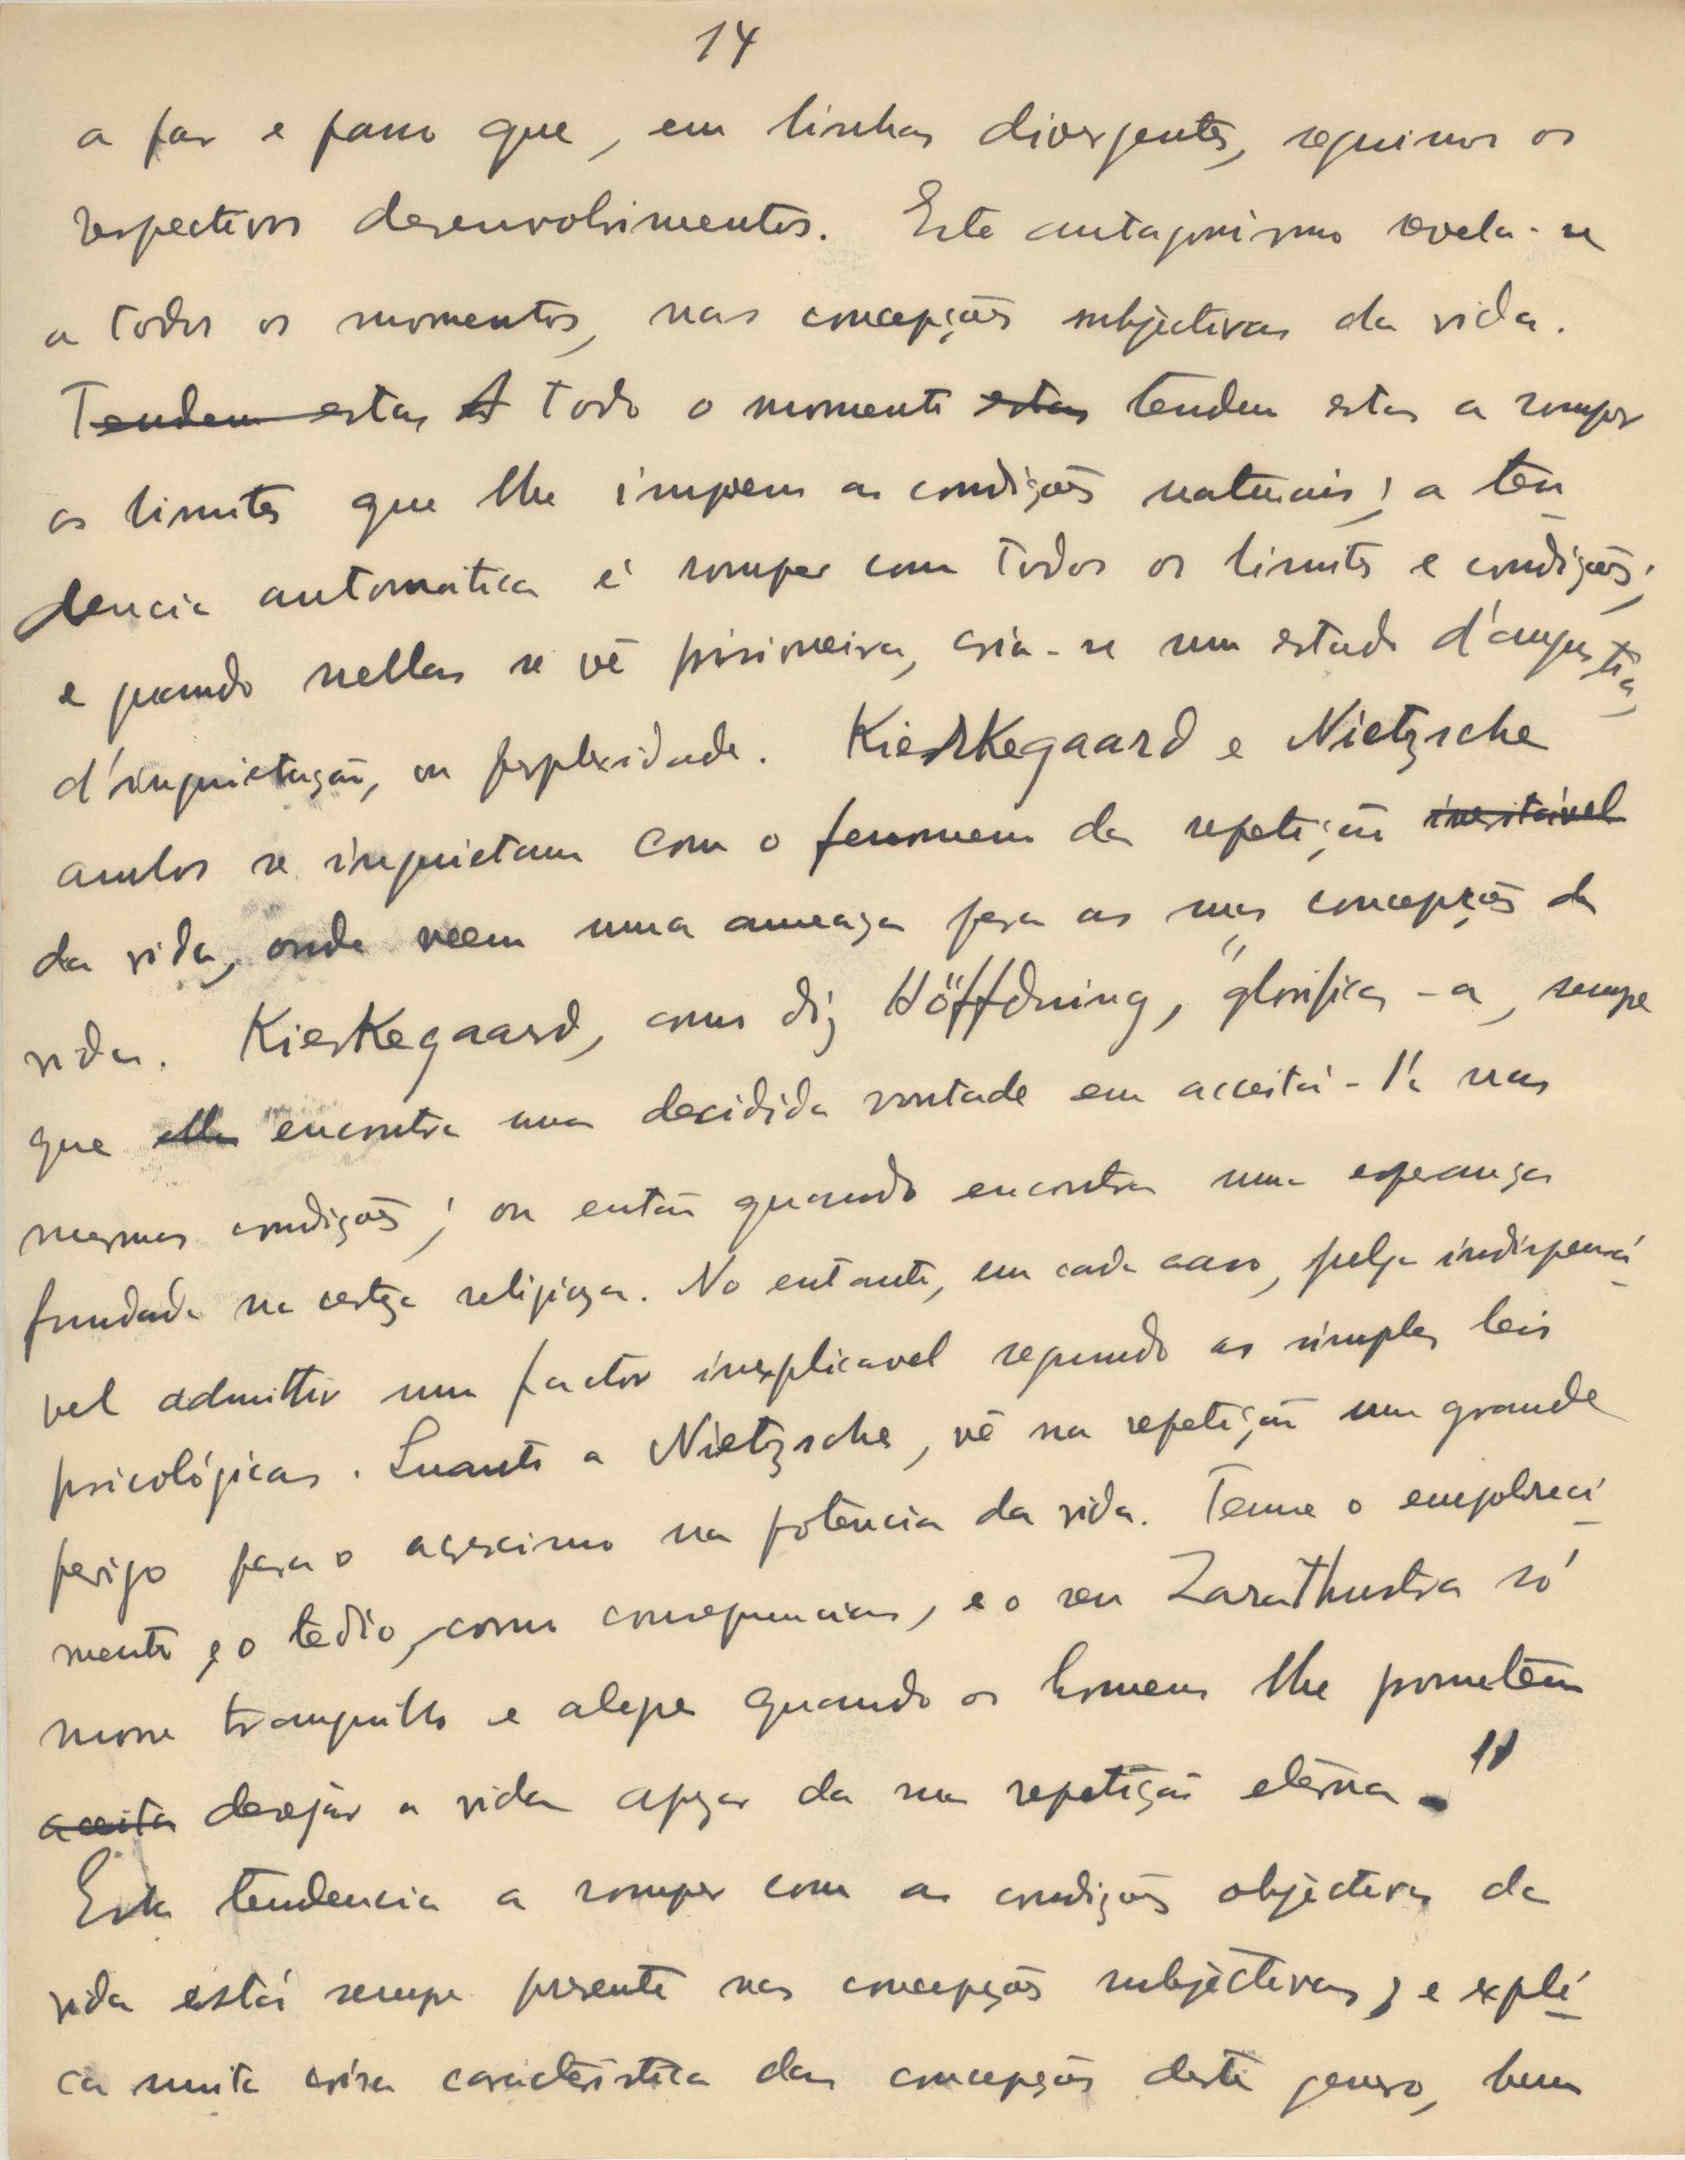 14
a par e passo que, em linhas divergentes, seguimos os
respectivos desenvolvimentos. Este antagonismo revela-se
a todos os momentos, nas concepções subjectivas da vida.
Tendem estas A todo o momento estas tendem estas a romper
os limites que lhe impoem as condições naturais; a ten_
dencia automática é romper com todos os limites e condições;
e quando nellas se vê prisioneira, cria-se um estado d'angustia,
d'inquietação, ou perplexidade. Kierkegaard e Nietzsche
ambos se inquietam com o fenomeno da repetição inevitável
da vida, onde veem uma ameaça para as suas concepções da
vida. Kierkegaard, como diz Höffdning, "glorifica-a, sempre
que ella encontra uma decidida vontade em acceitá-l'a nas
mesmas condições; ou então quando encontra uma esperança
fundada na certeza religioza. No entanto, em cada caso, julga indispensá_
vel admittir um factor inexplicavel segundo as simples leis
psicológicas. Quanto a Nietzsche, vê na repetição um grande
perigo para o acrescimo na potência da vida. Teme o empobreci_
mento e o tedio, como consequencias, e o seu Zarathustra só
morre tranquillo e alegre quando os homens lhe prometem
aceita desejar a vida apezar da sua repetição eterna."
Esta tendencia a romper com as condições objectivas da
vida está sempre presente nas concepções subjectivas; e expli_
ca muita coisa caracteristica das concepções deste genero, bem